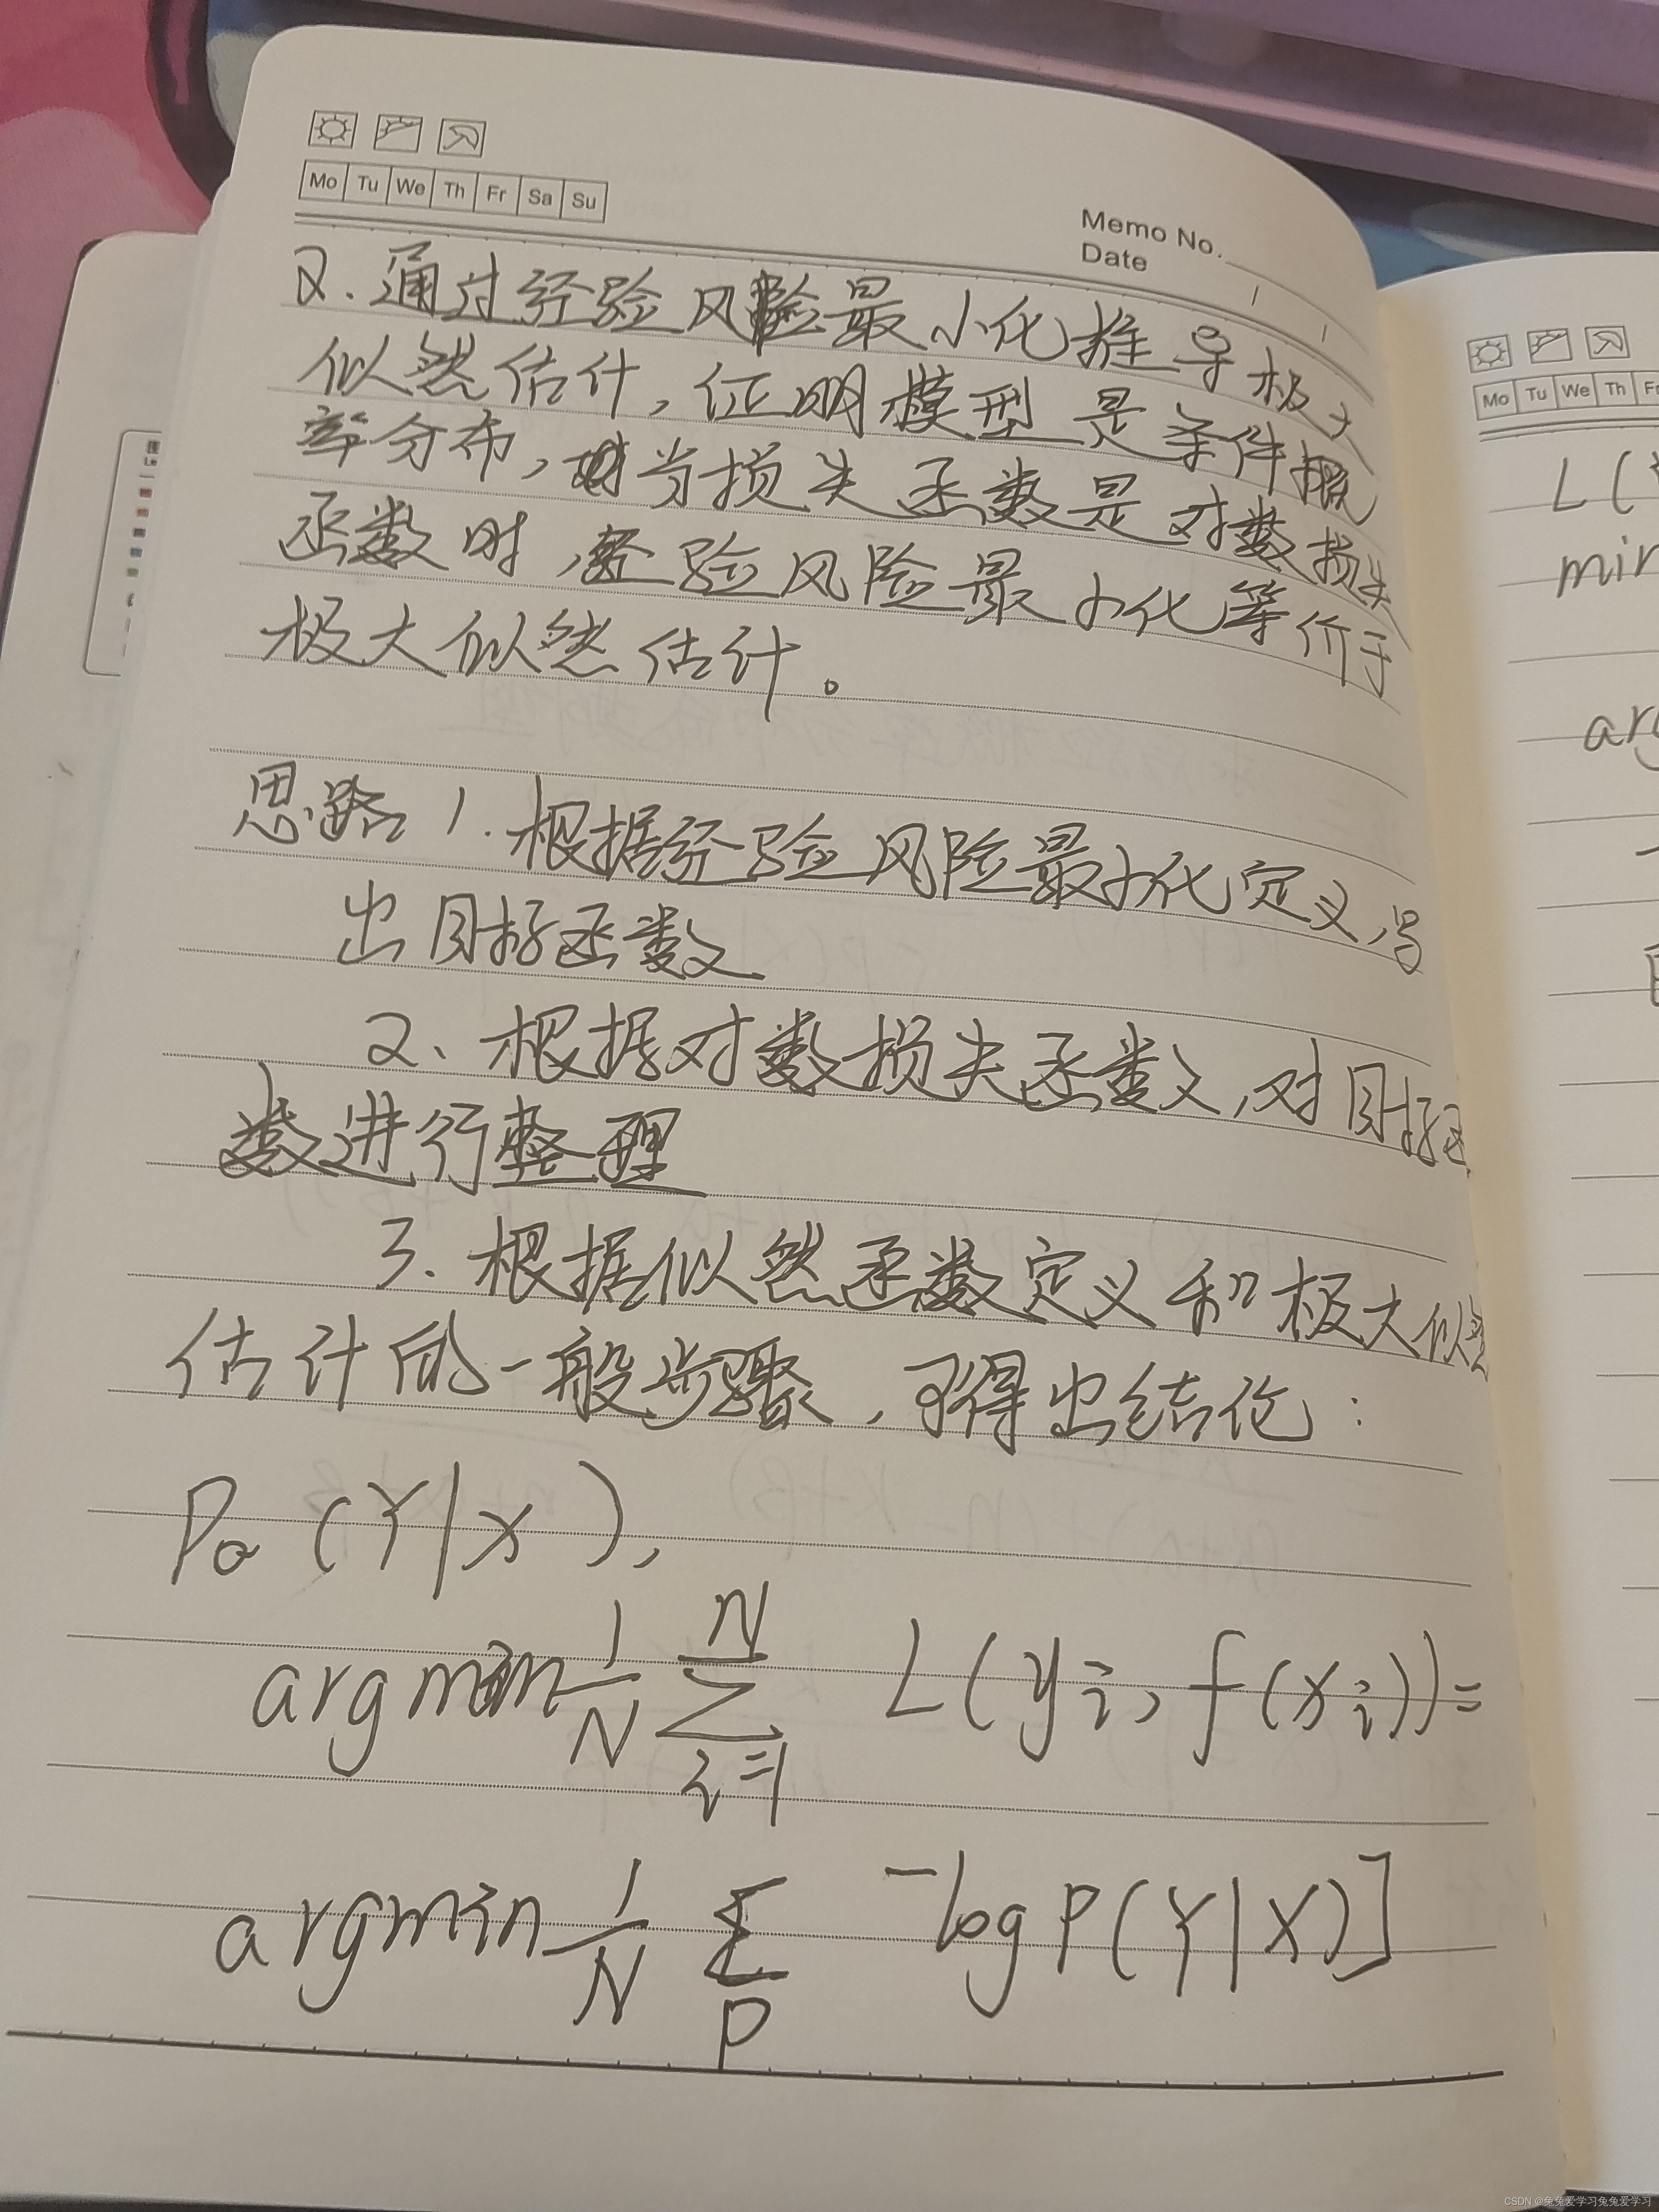 Mo Tu We Th Fr Sa Su
Memo No.
Date
2.通过经验风险最小化推导极大
似然估计,证明模型是条件概
率分布,当损失函数是对数损失
函数时,经验风险最小化等价于
极大似然估计。
思路1.根据经验风险最小化定义,写
出目标函数
2、根据对数损失函数,对目标函
数进行整理
3.根据似然函数定义和极大似然
估计的一般步骤,可得出结论:
Pθ(Y|X),
argmin 1/N ∑ N i=1 L(yi, f(xi))=
argmin 1/N ∑ P -logP(Y|X)]
Mo Tu We Th Fr
L(
min
arg
CSDN @兔兔爱学习兔兔爱学习